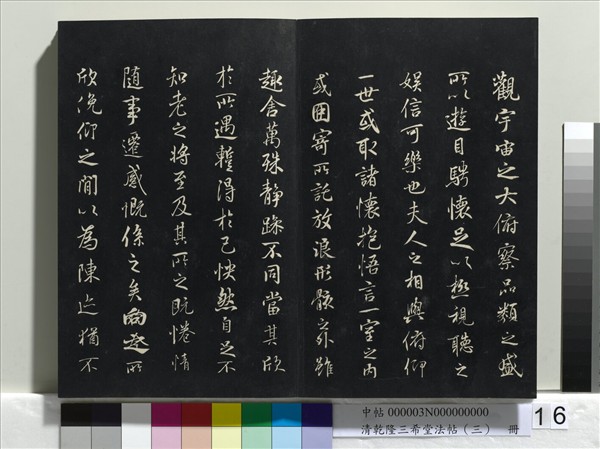 觀宇宙之大俯察品類之盛
所以遊目騁懷足以極視聽之
娛信可樂也夫人之相與俯仰
一世或取諸懷抱悟言一室之內
或因寄所託放浪形骸之外雖
趣舍萬殊靜躁不同當其欣
於所遇暫得於己怏然自足不
知老之將至及其所之既惓情
隨事遷感慨係之矣向之所
欣俛仰之間以為陳迹猶不
中帖 000003N000000000
清乾隆三希堂法帖(三) 冊
16